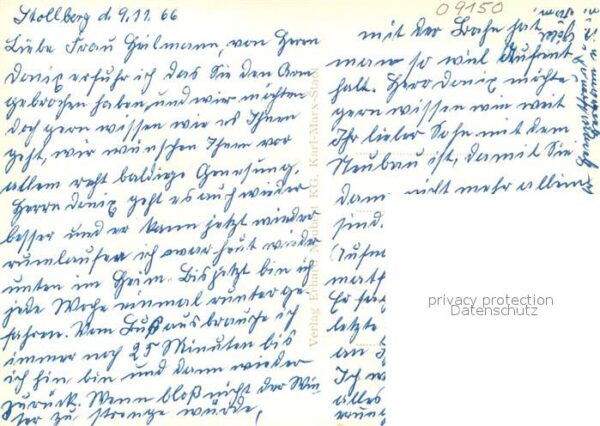 Stollberg d. 9.11.66
09150
Liebe Frau Heilmann, von Herrn
Donix erfuhr ich das Sie den Arm
gebrochen haben, und wir möchten
doch gern wissen wie es Ihnen
geht, wir wünschen Ihnen vor
allem recht baldige Genesung.
Herrn Donix geht es auch wieder
besser und er kann jetzt wieder
rumlaufen ich war heut wieder
unten im Heim. Bis jetzt bin ich
jede Woche einmal runter ge-
fahren. Vom Fuß aus brauche ich
immer noch 25 Minuten bis
ich hin bin und dann wieder
zurück. Wenn bloß nicht der Win-
ter zu strenge würde,
Verlag Erhard Neubert KG, Karl-Marx-Stadt
mit der Bahn hat
man so viel Aufent
halt. Herr Donix möchte
gern wissen wie weit
Ihr lieber Sohn mit dem
Neubau ist, damit Sie
dann nicht mehr allein
sind.
letzte
an
Ich
alles
privacy protection
Datenschutz